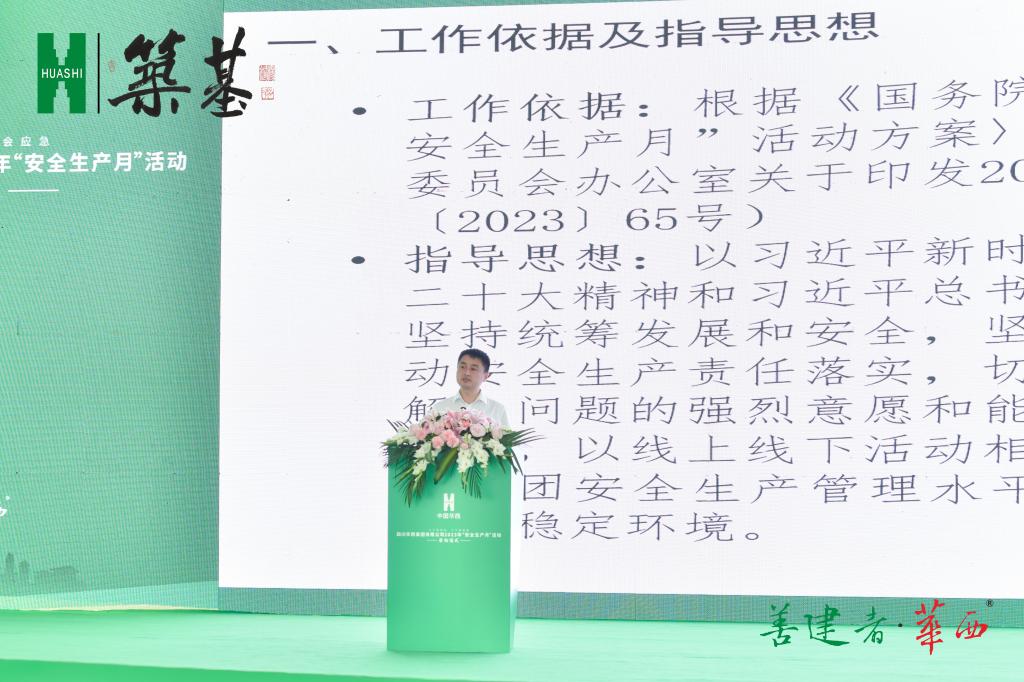 HUASHI
築基
会应急
年“安全生产月”活动
一、工作依据及指导思想
• 工作依据：根据《国务院
安全生产月”活动方案》
委员会办公室关于印发20
〔2023〕65号）
• 指导思想：以习近平新时
二十大精神和习近平总书
坚持统筹发展和安全，坚
动安全生产责任落实，切
解 问题的强烈意愿和能
，以线上线下活动相
团安全生产管理水平
稳定环境。
中国华西
四川华西集团有限公司2023年“安全生产月”活动
启动仪式
善建者·華西®